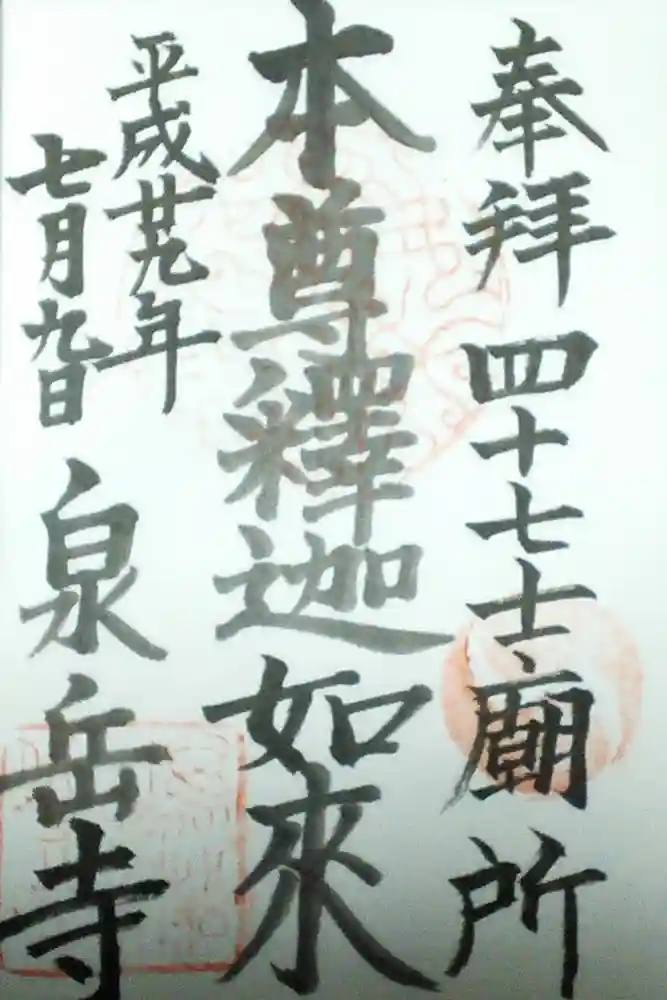 奉拝 四十七士廟所
本尊釋迦如來
平成廿九年
七月九日
泉岳寺